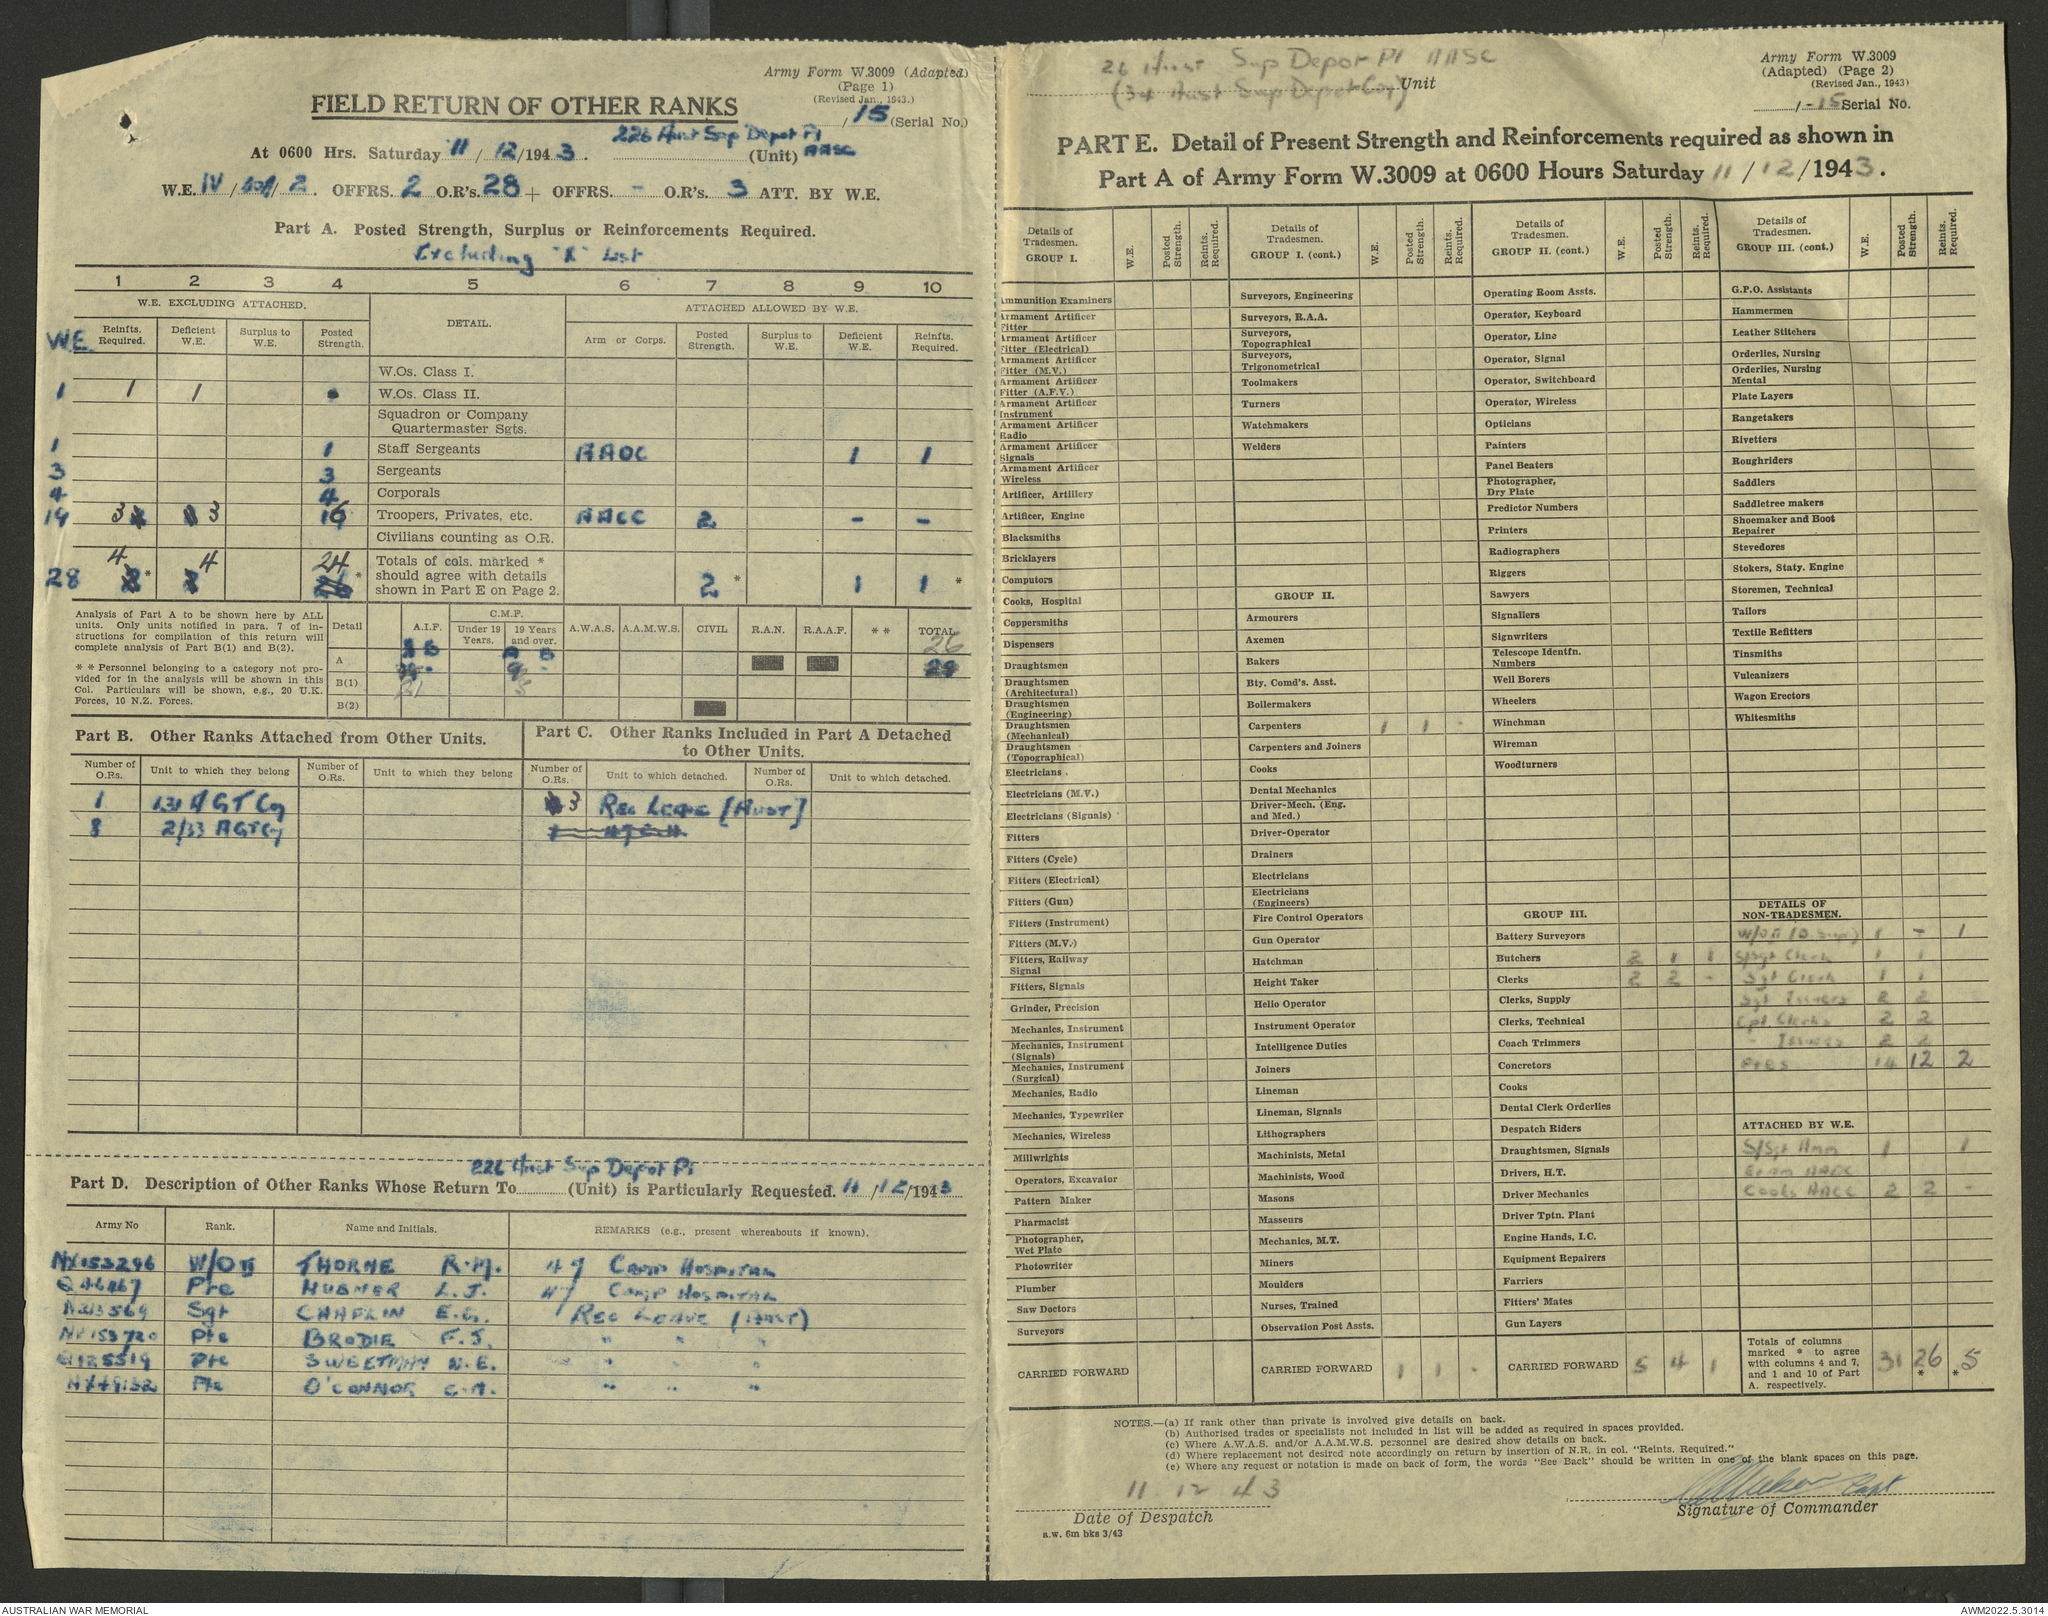 Army Form W.3009 (Adapted)
(Page 1)
(Revised Jan., 1943.)
FIELD RETURN OF OTHER RANKS
/15 (Serial No.)
At 0600 Hrs. Saturday 11/12/1943. 226 Aust Sup Depot Pl (Unit) AASC
W.E. IV/ /2. OFFRS. 2 O.R's. 28 + OFFRS. - O.R's. 3 ATT. BY W.E.
Part A. Posted Strength, Surplus or Reinforcements Required.
Excluding "X" List
1 2 3 4 5 6 7 8 9 10
W.E. EXCLUDING ATTACHED. DETAIL. ATTACHED ALLOWED BY W.E.
WE Reinfts. Required. Deficient W.E. Surplus to W.E. Posted Strength. Arm or Corps. Posted Strength. Surplus to W.E. Deficient W.E. Reinfts. Required.
W.Os. Class I.
1 1 1 W.Os. Class II.
Squadron or Company Quartermaster Sgts.
1 1 Staff Sergeants AAOC 1 1
3 3 Sergeants
4 4 Corporals
19 3 3 16 Troopers, Privates, etc. AACC 2 - -
Civilians counting as O.R.
28 4 * 4 24 * Totals of cols. marked * should agree with details shown in Part E on Page 2. 2 * 1 1 *
Analysis of Part A to be shown here by ALL units. Only units notified in para. 7 of instructions for compilation of this return will complete analysis of Part B(1) and B(2).
* * Personnel belonging to a category not provided for in the analysis will be shown in this Col. Particulars will be shown, e.g., 20 U.K. Forces, 10 N.Z. Forces.
Detail A.I.F. C.M.F. Under 19 Years. 19 Years and over. A.W.A.S. A.A.M.W.S. CIVIL R.A.N. R.A.A.F. * * TOTAL
A 26
B(1) 21 5
B(2)
Part B. Other Ranks Attached from Other Units.
Number of O.Rs. Unit to which they belong Number of O.Rs. Unit to which they belong
1 131 A GT Coy
8 2/33 AGT Coy
Part C. Other Ranks Included in Part A Detached to Other Units.
Number of O.Rs. Unit to which detached. Number of O.Rs. Unit to which detached.
3 Rec Leave [Aust]
226 Aust Sup Depot Pl
Part D. Description of Other Ranks Whose Return To (Unit) is Particularly Requested. 11/12/1943
Army No Rank. Name and Initials. REMARKS (e.g., present whereabouts if known).
NX153296 W/O II THORNE R.M. 47 Camp Hospital
Q46467 Pte HUBNER L.J. 47 Camp Hospital
N213569 Sgt CHAPLIN E.G. Rec Leave (Aust)
NX153720 Pte BRODIE F.J. " " "
Q125519 Pte SWEETMAN N.E. " " "
NX49132 Pte O'CONNOR C.A. " " "
26 Aust Sup Depot Pl AASC
(34 Aust Sup Depot Coy) Unit
Army Form W.3009
(Adapted) (Page 2)
(Revised Jan., 1943)
/-15 Serial No.
PART E. Detail of Present Strength and Reinforcements required as shown in
Part A of Army Form W.3009 at 0600 Hours Saturday 11/12/1943.
Details of Tradesmen. GROUP I. W.E. Posted Strength. Reints. Required.
Ammunition Examiners
Armament Artificer Fitter
Armament Artificer Fitter (Electrical)
Armament Artificer Fitter (M.V.)
Armament Artificer Fitter (A.F.V.)
Armament Artificer Instrument
Armament Artificer Radio
Armament Artificer Signals
Armament Artificer Wireless
Artificer, Artillery
Artificer, Engine
Blacksmiths
Bricklayers
Computors
Cooks, Hospital
Coppersmiths
Dispensers
Draughtsmen
Draughtsmen (Architectural)
Draughtsmen (Engineering)
Draughtsmen (Mechanical)
Draughtsmen (Topographical)
Electricians
Electricians (M.V.)
Electricians (Signals)
Fitters
Fitters (Cycle)
Fitters (Electrical)
Fitters (Gun)
Fitters (Instrument)
Fitters (M.V.)
Fitters, Railway Signal
Fitters, Signals
Grinder, Precision
Mechanics, Instrument
Mechanics, Instrument (Signals)
Mechanics, Instrument (Surgical)
Mechanics, Radio
Mechanics, Typewriter
Mechanics, Wireless
Millwrights
Operators, Excavator
Pattern Maker
Pharmacist
Photographer, Wet Plato
Photowriter
Plumber
Saw Doctors
Surveyors
CARRIED FORWARD
Details of Tradesmen. GROUP I. (cont.) W.E. Posted Strength. Reints. Required.
Surveyors, Engineering
Surveyors, R.A.A.
Surveyors, Topographical
Surveyors, Trigonometrical
Toolmakers
Turners
Watchmakers
Welders
GROUP II.
Armourers
Axemen
Bakers
Bty. Comd's. Asst.
Boilermakers
Carpenters 1 1 -
Carpenters and Joiners
Cooks
Dental Mechanics
Driver-Mech. (Eng. and Med.)
Driver-Operator
Drainers
Electricians
Electricians (Engineers)
Fire Control Operators
Gun Operator
Hatchman
Height Taker
Helio Operator
Instrument Operator
Intelligence Duties
Joiners
Lineman
Lineman, Signals
Lithographers
Machinists, Metal
Machinists, Wood
Masons
Masseurs
Mechanics, M.T.
Miners
Moulders
Nurses, Trained
Observation Post Assts.
CARRIED FORWARD 1 1 -
Details of Tradesmen. GROUP II. (cont.) W.E. Posted Strength. Reints. Required.
Operating Room Assts.
Operator, Keyboard
Operator, Line
Operator, Signal
Operator, Switchboard
Operator, Wireless
Opticians
Painters
Panel Beaters
Photographer, Dry Plate
Predictor Numbers
Printers
Radiographers
Riggers
Sawyers
Signallers
Signwriters
Telescope Identfn. Numbers
Well Borers
Wheelers
Winchman
Wireman
Woodturners
GROUP III.
Battery Surveyors
Butchers 2 1 1
Clerks 2 2 -
Clerks, Supply
Clerks, Technical
Coach Trimmers
Concretors
Cooks
Dental Clerk Orderlies
Despatch Riders
Draughtsmen, Signals
Drivers, H.T.
Driver Mechanics
Driver Tptn. Plant
Engine Hands, I.C.
Equipment Repairers
Farriers
Fitters' Mates
Gun Layers
CARRIED FORWARD 5 4 1
Details of Tradesmen. GROUP III. (cont.) W.E. Posted Strength. Reints. Required.
G.P.O. Assistants
Hammermen
Leather Stitchers
Orderlies, Nursing
Orderlies, Nursing Mental
Plate Layers
Rangetakers
Rivetters
Roughriders
Saddlers
Saddletree makers
Shoemaker and Boot Repairer
Stevedores
Stokers, Staty. Engine
Storemen, Technical
Tailors
Textile Refitters
Tinsmiths
Vulcanizers
Wagon Erectors
Whitesmiths
DETAILS OF NON-TRADESMEN.
W/O II 1 - 1
S/Sgt Clerk 1 1
Sgt Clerk 1 1
Sgt Issuers 2 2
Cpl Clerks 2 2
" Issuers 2 2
Ptes 14 12 2
ATTACHED BY W.E.
S/Sgt Amm 1 1
Exam AAOC
Cooks AACC 2 2 -
Totals of columns marked * to agree with columns 4 and 7, and 1 and 10 of Part A. respectively. 31 26 * * 5
NOTES.—(a) If rank other than private is involved give details on back.
(b) Authorised trades or specialists not included in list will be added as required in spaces provided.
(c) Where A.W.A.S. and/or A.A.M.W.S. personnel are desired show details on back.
(d) Where replacement not desired note accordingly on return by insertion of N.R. in col. "Reints. Required."
(e) Where any request or notation is made on back of form, the words "See Back" should be written in one of the blank spaces on this page.
11 12 43
Date of Despatch
Capt
Signature of Commander
R.W. 6m bks 3/43
AUSTRALIAN WAR MEMORIAL
AWM2022.5.3014